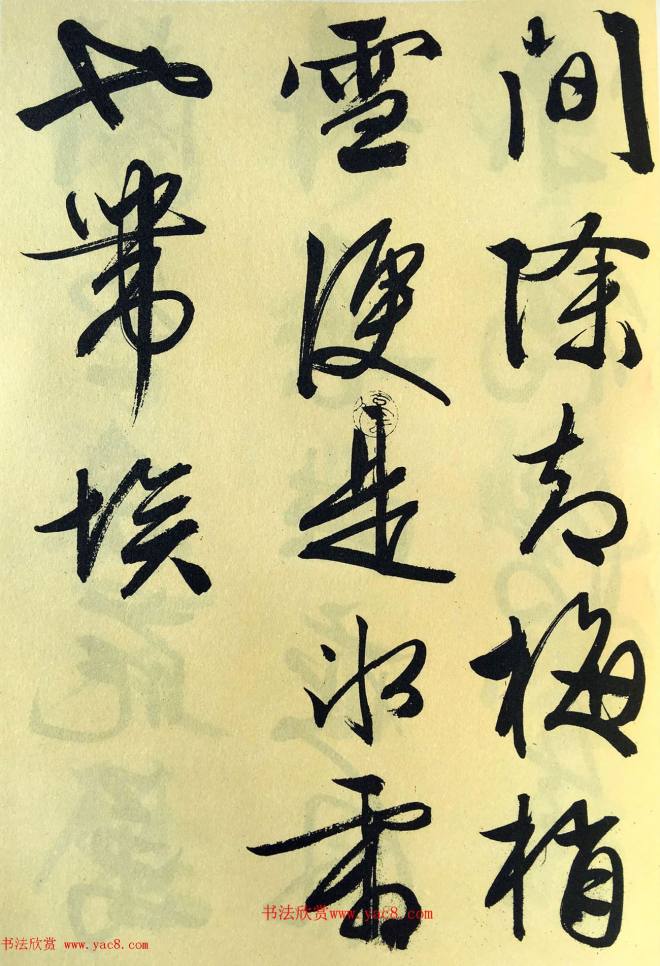 间除却梅梢
雪便是冰霜
也带埃
书法欣赏www.yac8.com
书法欣赏 www.yac8.com